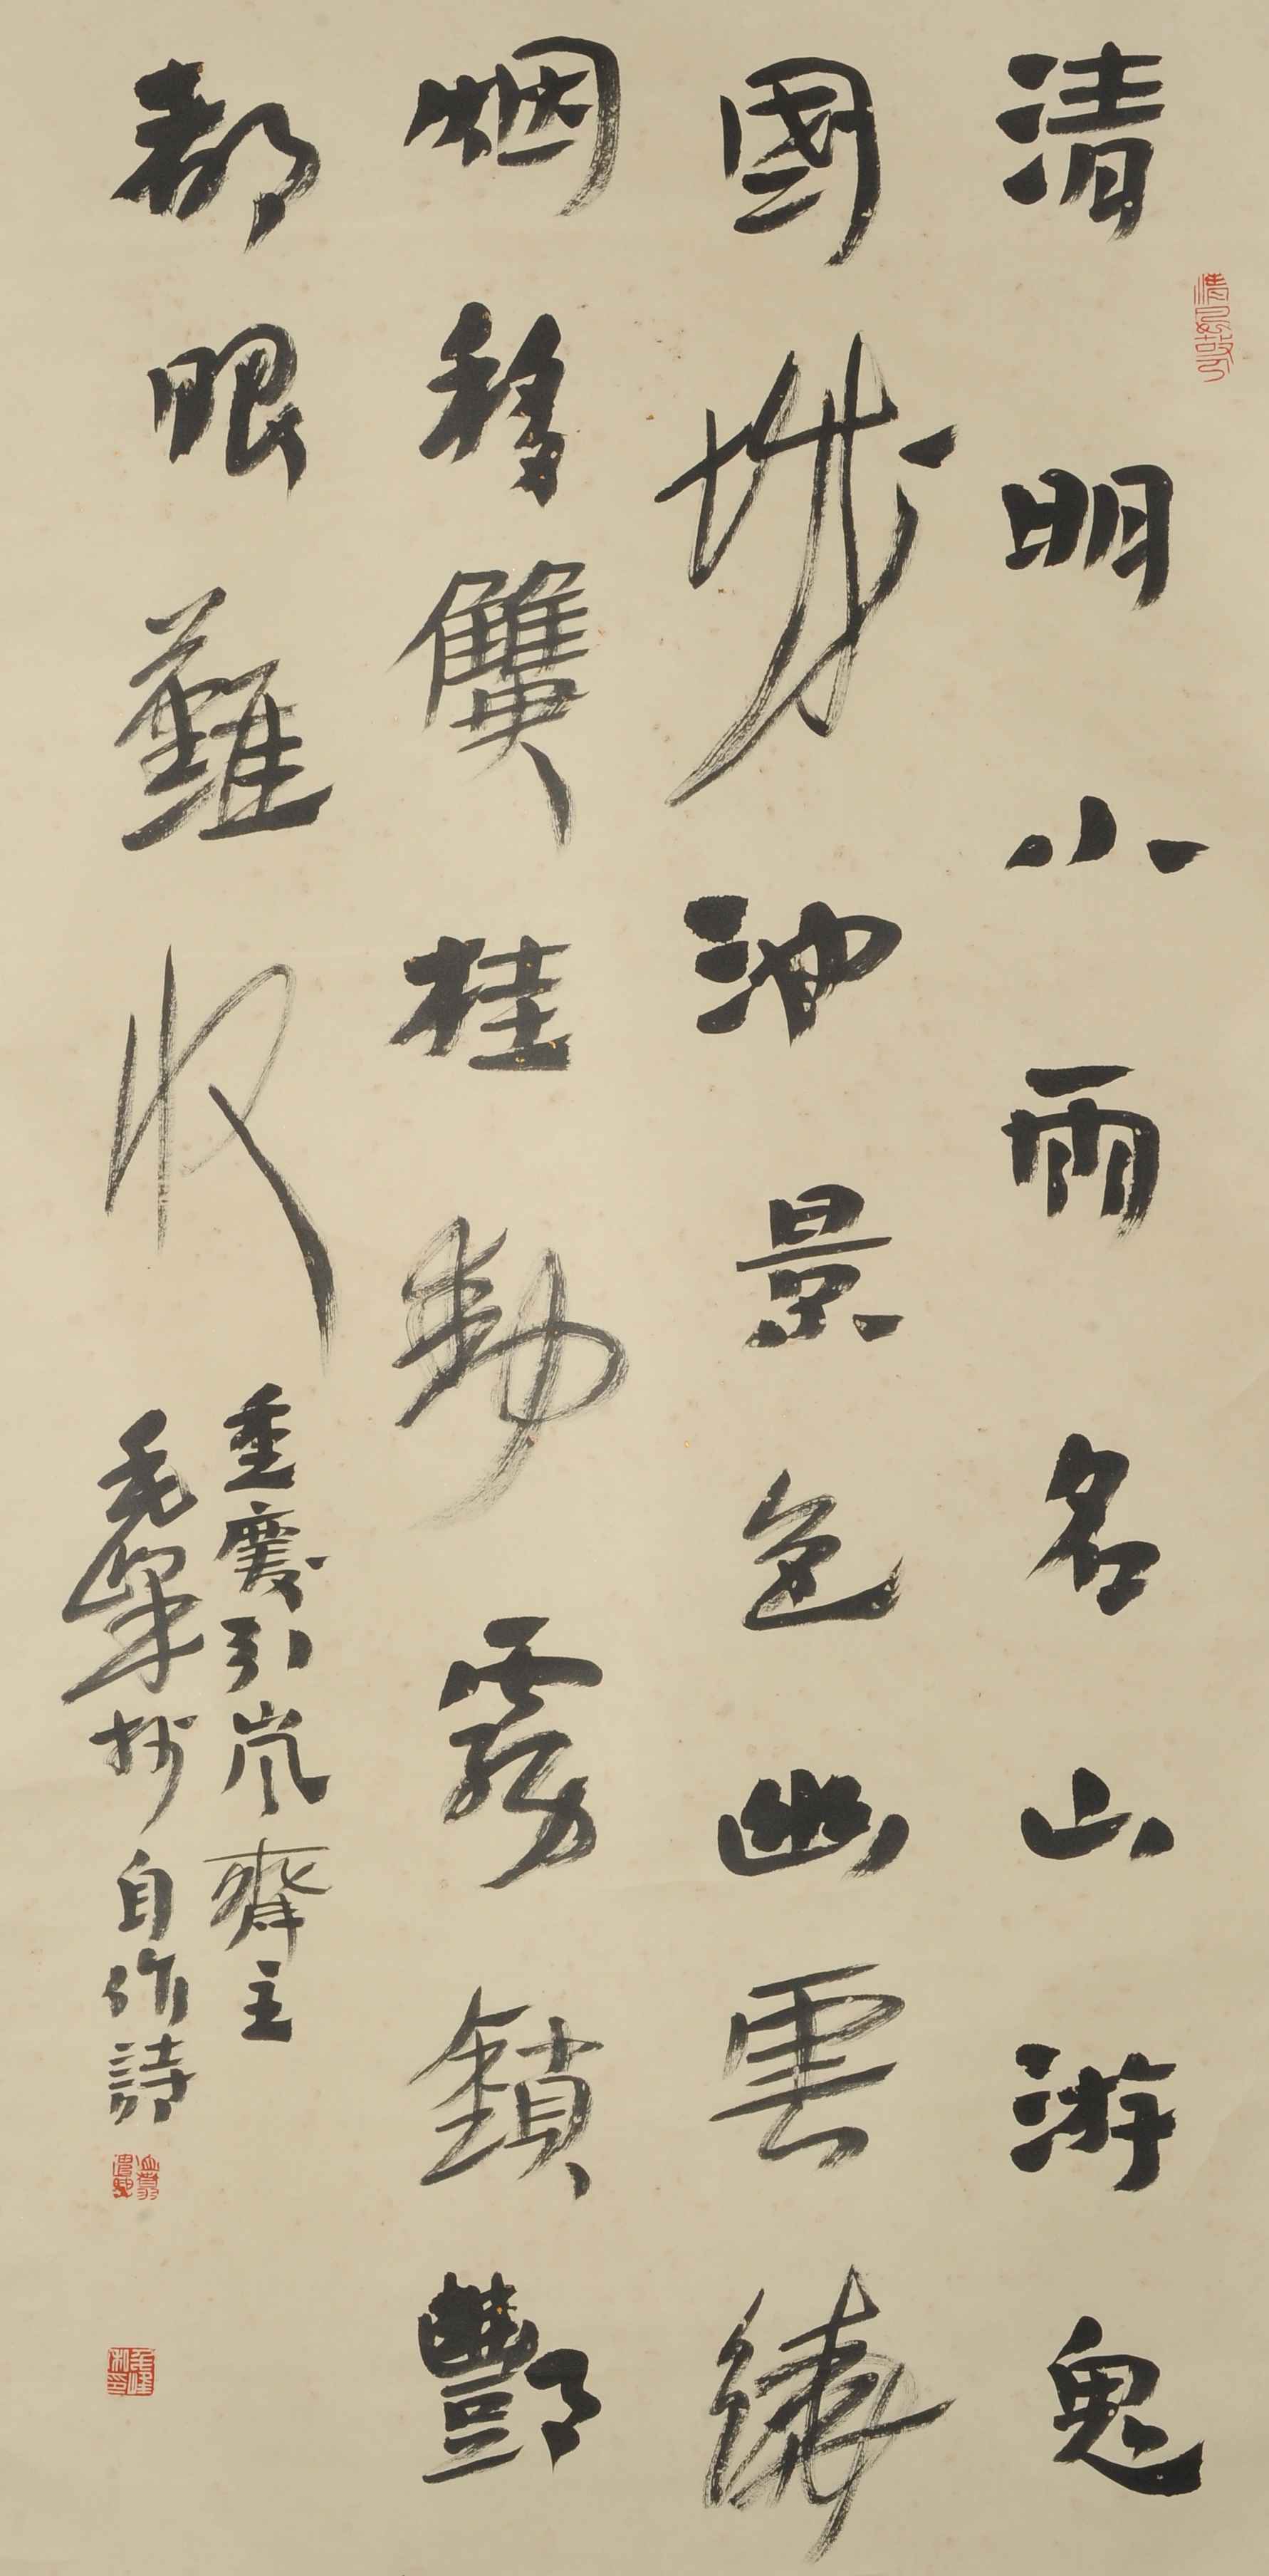 清明小雨名山游鬼
國城池景色幽雲繞
烟移雙桂動霧鎖酆
都眼難收
重慶引嵐齋主
毛峰抄自作詩